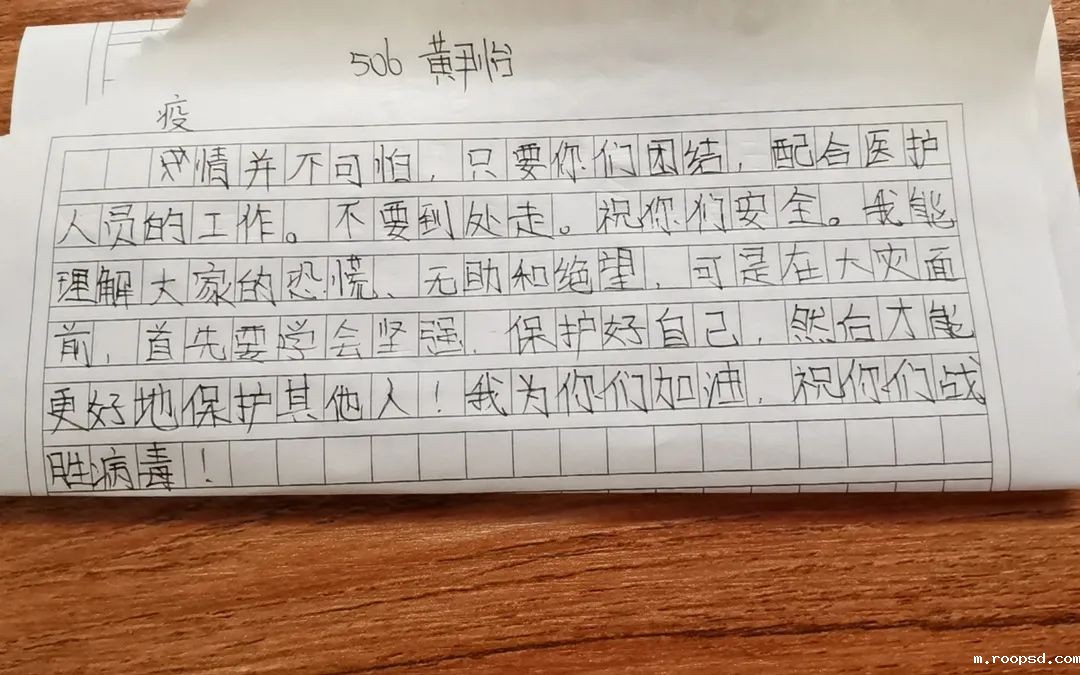 506 黄尹怡
疫
情并不可怕，只要你们团结，配合医护
人员的工作。不要到处走。祝你们安全。我能
理解大家的恐慌、无助和绝望，可是在大灾面
前，首先要学会坚强，保护好自己，然后才能
更好地保护其他人！我为你们加油，祝你们战
胜病毒！
m.roopsd.com